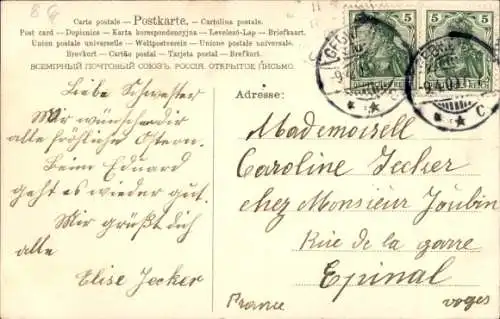 Carte postale - Postkarte. - Cartolina postale.
Post card - Dopisnice - Karta korespondencyjna - Levelező-Lap - Briefkaart.
Union postale universelle - Weltpostverein - Unione postale universale.
Brevkort - Cartão postal - Tarjeta postal - Brefkort.
ВСЕМІРНЫЙ ПОЧТОВЫЙ СОЮЗЪ. РОССІЯ. ОТКРЫТОЕ ПИСЬМО.
5 5
5 5
DEUTSCHES REICH
Liebe Schwester
Wir wünschen dir
alle fröhliche Ostern.
Beim Eduard
geht es wieder gut.
Wir grüßt dich
alle
Elise Jecker
Adresse:
Mademoisell
Caroline Jecker
chez Monsieur Joubin
Rue de la gare
Epinal
France
Voges